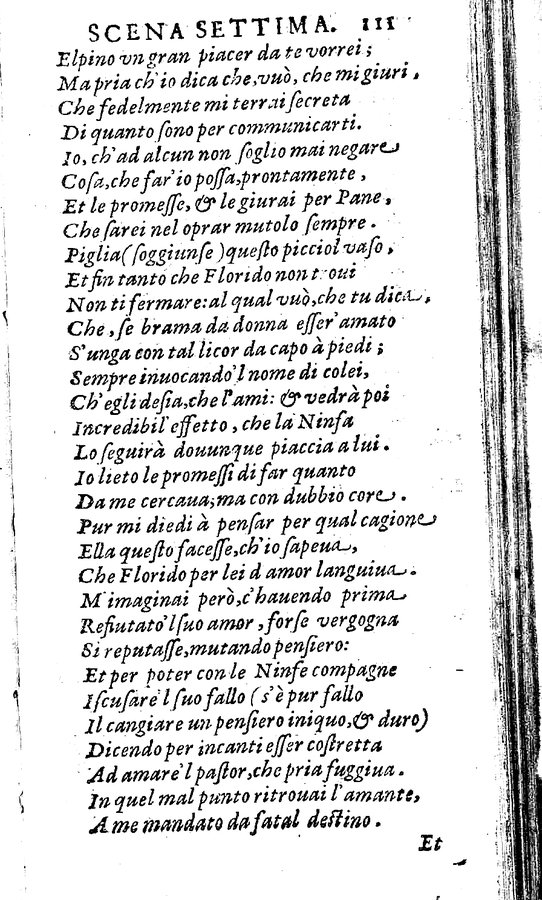 SCENA SETTIMA. 111
Elpino vn gran piacer da te vorrei;
Ma pria ch'io dica che, vuò, che mi giuri,
Che fedelmente mi terrai ſecreta
Di quanto ſono per communicarti.
Io, ch'ad alcun non ſoglio mai negare
Coſa, che far'io poſſa, prontamente,
Et le promeſſe, & le giurai per Pane,
Che ſarei nel oprar mutolo ſempre.
Piglia (ſoggiunſe) queſto picciol vaſo,
Et fin tanto che Florido non troui
Non ti fermare: al qual vuò, che tu dica,
Che, ſe brama da donna eſſer'amato
S'unga con tal licor da capo à piedi;
Sempre inuocando'l nome di colei,
Ch'egli deſia, che l'ami: & vedrà poi
Incredibil'effetto, che la Ninfa
Lo ſeguirà douunque piaccia a lui.
Io lieto le promeſſi di far quanto
Da me cercaua; ma con dubbio core.
Pur mi diedi à penſar per qual cagione
Ella queſto faceſſe, ch'io ſapeua,
Che Florido per lei d amor languiua.
M'imaginai però, c'hauendo prima
Refiutato'l ſuo amor, forſe vergogna
Si reputaſſe, mutando penſiero:
Et per poter con le Ninfe compagne
Iſcuſare'l ſuo fallo (s'è pur fallo
Il cangiare un penſiero iniquo, & duro)
Dicendo per incanti eſſer coſtretta
Ad amare'l paſtor, che pria fuggiua.
In quel mal punto ritrouai l'amante,
A me mandato da fatal deſtino.
Et